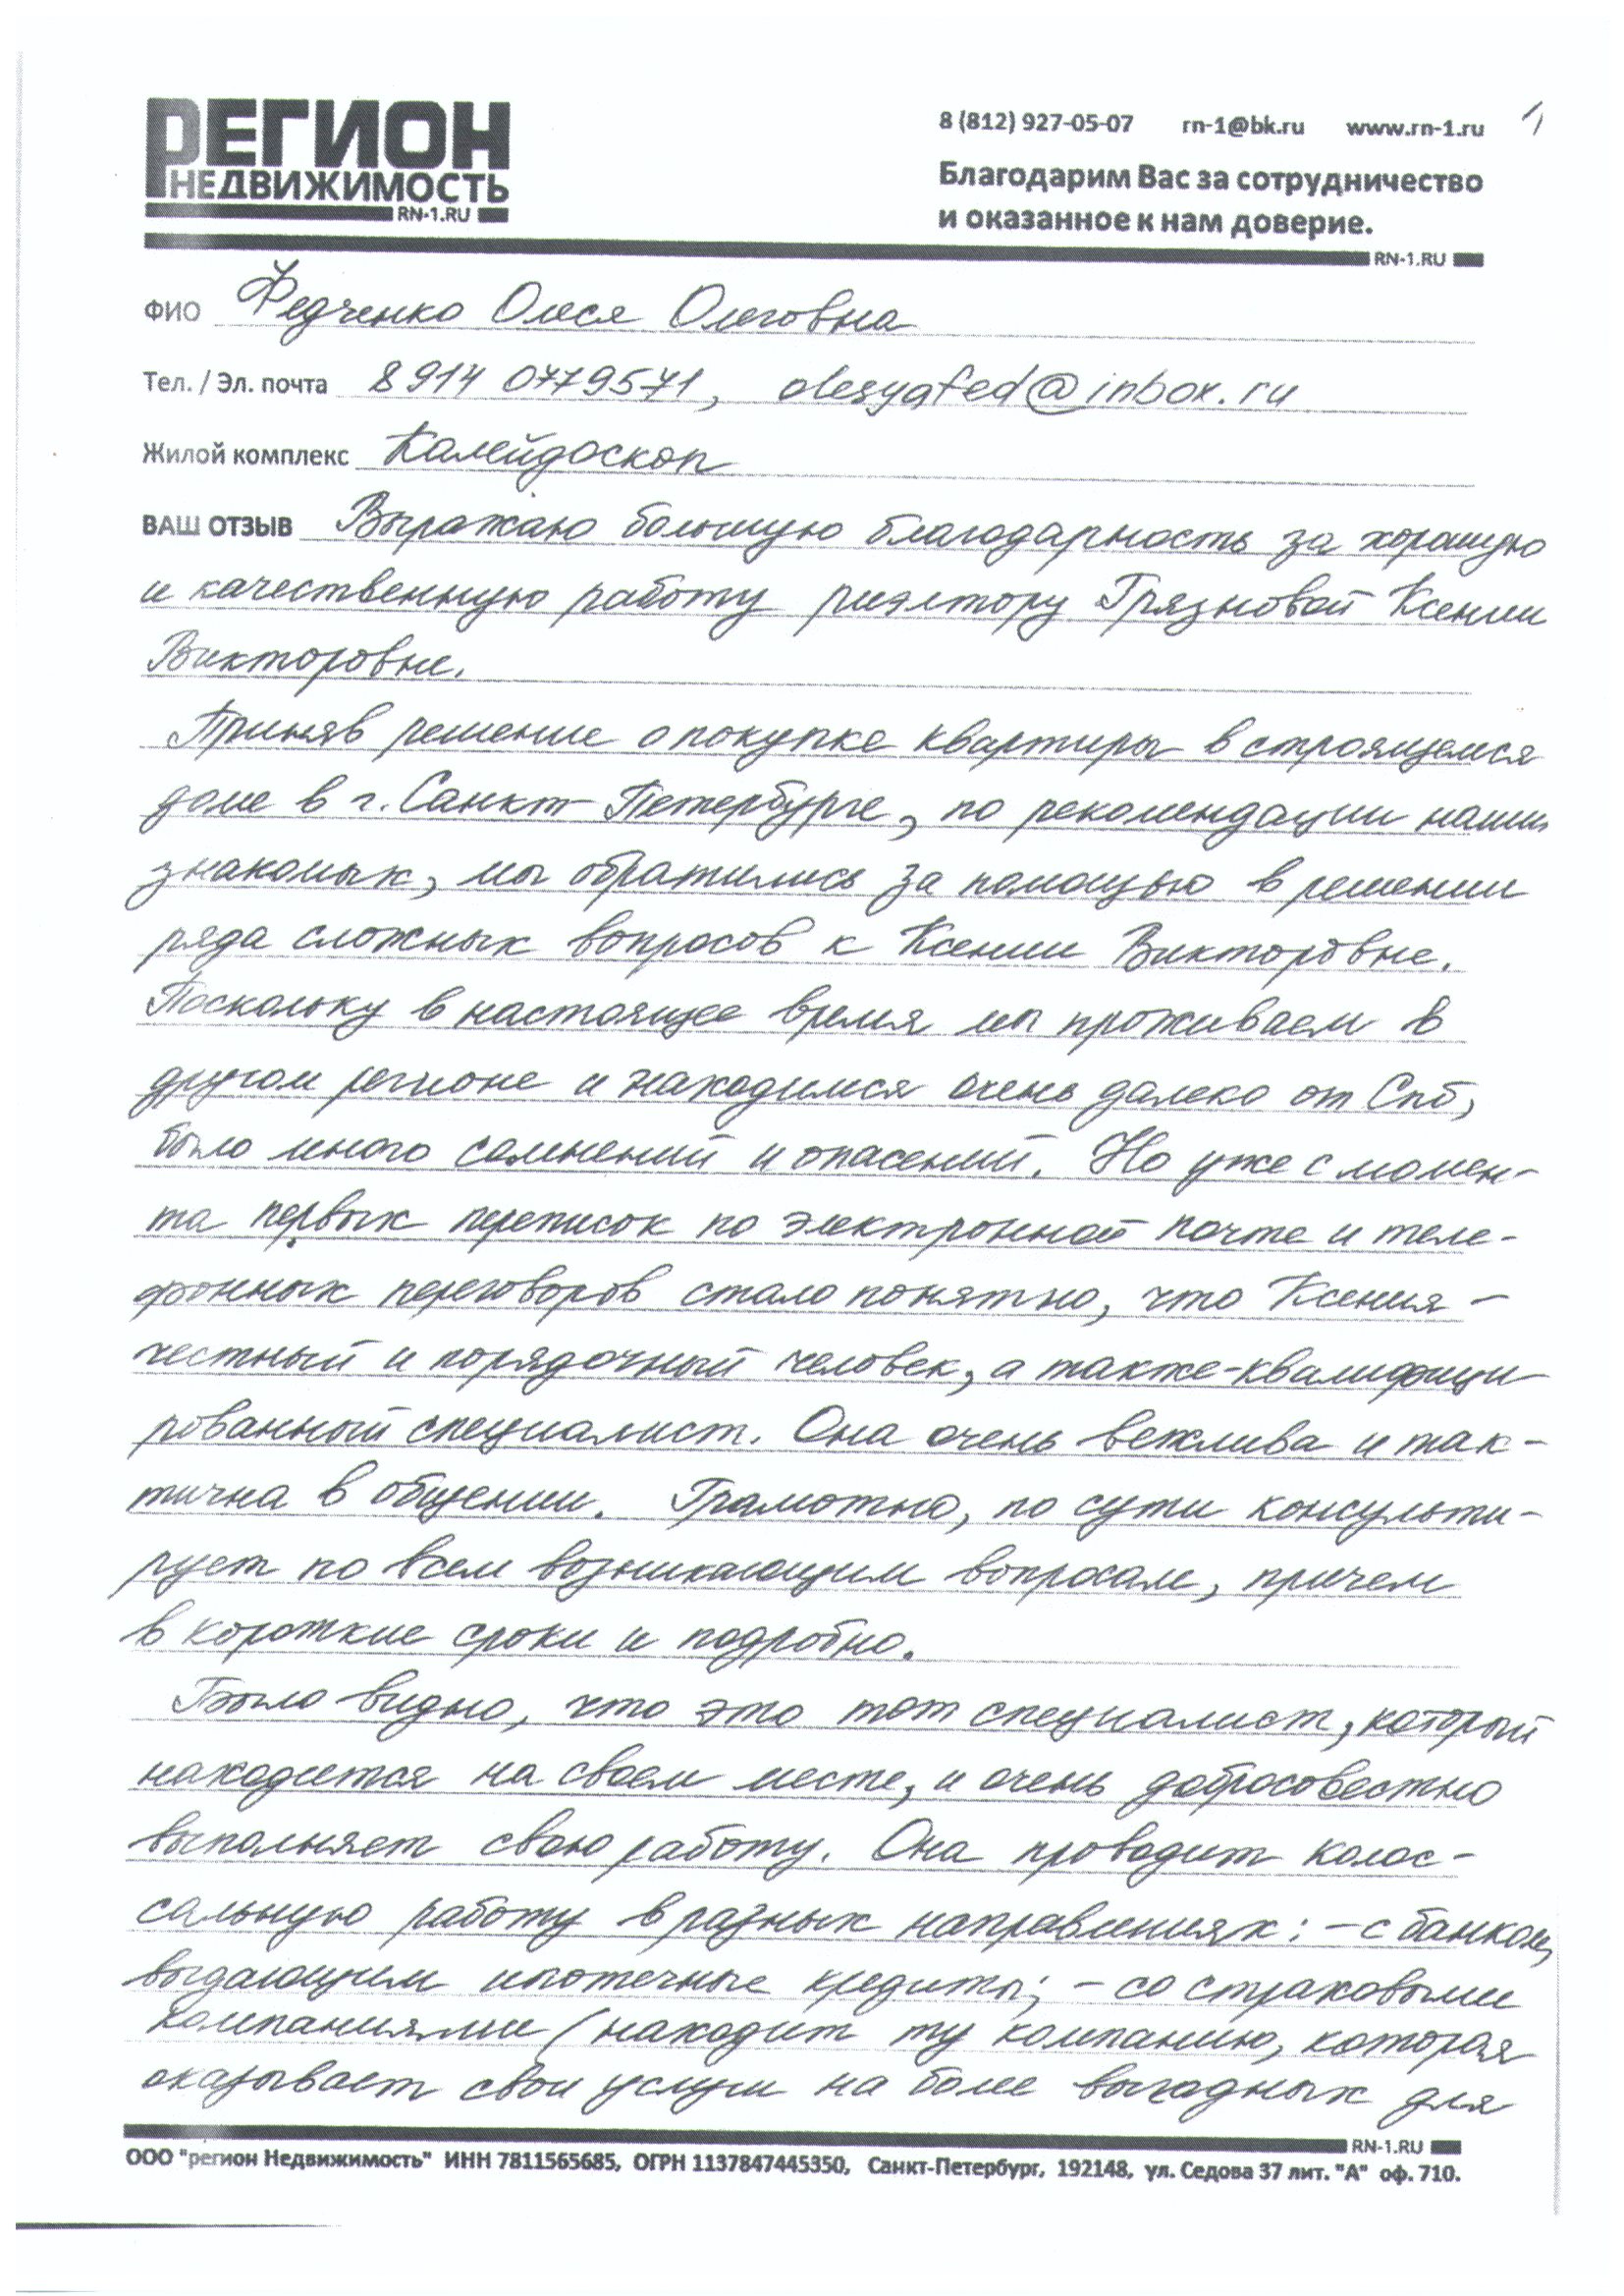 РЕГИОН
НЕДВИЖИМОСТЬ
RN-1.RU
8 (812) 927-05-07 rn-1@bk.ru www.rn-1.ru
1
Благодарим Вас за сотрудничество
и оказанное к нам доверие.
RN-1.RU
ФИО Федченко Олеся Олеговна
Тел. / Эл. почта 8914 0779571, olesyafed@inbox.ru
Жилой комплекс Калейдоскоп
ВАШ ОТЗЫВ Выражаю большую благодарность за хорошую
и качественную работу риэлтору Грязновой Ксении
Викторовне.
Приняв решение о покупке квартиры в строящемся
доме в г. Санкт-Петербурге, по рекомендации наших
знакомых, мы обратились за помощью в решении
ряда сложных вопросов к Ксении Викторовне.
Поскольку в настоящее время мы проживаем в
другом регионе и находимся очень далеко от Спб,
было много сомнений и опасений. Но уже с момен-
та первых переписок по электронной почте и теле-
фонных переговоров стало понятно, что Ксения -
честный и порядочный человек, а также-квалифици
рованный специалист. Она очень вежлива и так-
тична в общении. Грамотно, по сути консульти-
рует по всем возникающим вопросам, причем
в короткие сроки и подробно.
Было видно, что это тот специалист, который
находится на своем месте, и очень добросовестно
выполняет свою работу. Она проводит колос-
сальную работу в разных направлениях: - с банком,
выдающим ипотечные кредиты; - со страховыми
компаниями (находит ту компанию, которая
оказывает свои услуги на более выгодных для
RN-1.RU
ООО "регион Недвижимость" ИНН 7811565685, ОГРН 1137847445350, Санкт-Петербург, 192148, ул. Седова 37 лит. "А" оф. 710.